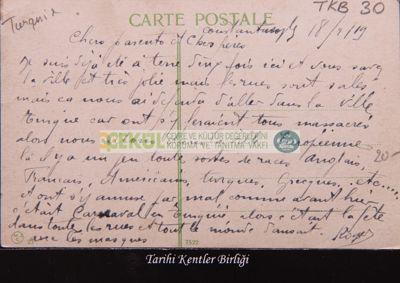 Turquie
CARTE POSTALE
TKB 30
Constantinople 18/2/19
Chers parents et Chers frères
Je suis déjà été à terre cinq fois ici et vous savez
la ville est très jolie mais les rues sont sales
mais ca nous ai défendu d'aller dans la ville
Turque car ont s'y feraient tous massacrés
alors nous
ÇEKÜL
ÇEVRE VE KÜLTÜR DEĞERLERİNİ
KORUMA VE TANITMA VAKFI
20-
là il y a un peu toute sortes de races Anglais,
Français, Américains, Turques, Grecques, etc....
et ont s'y amuse pas mal, comme avant hier
c'était Carnaval en Turquie, alors c'était la fête
dans toute les rues et tout le monde dansait
avec les masques
Roger
7522
Tarihi Kentler Birliği